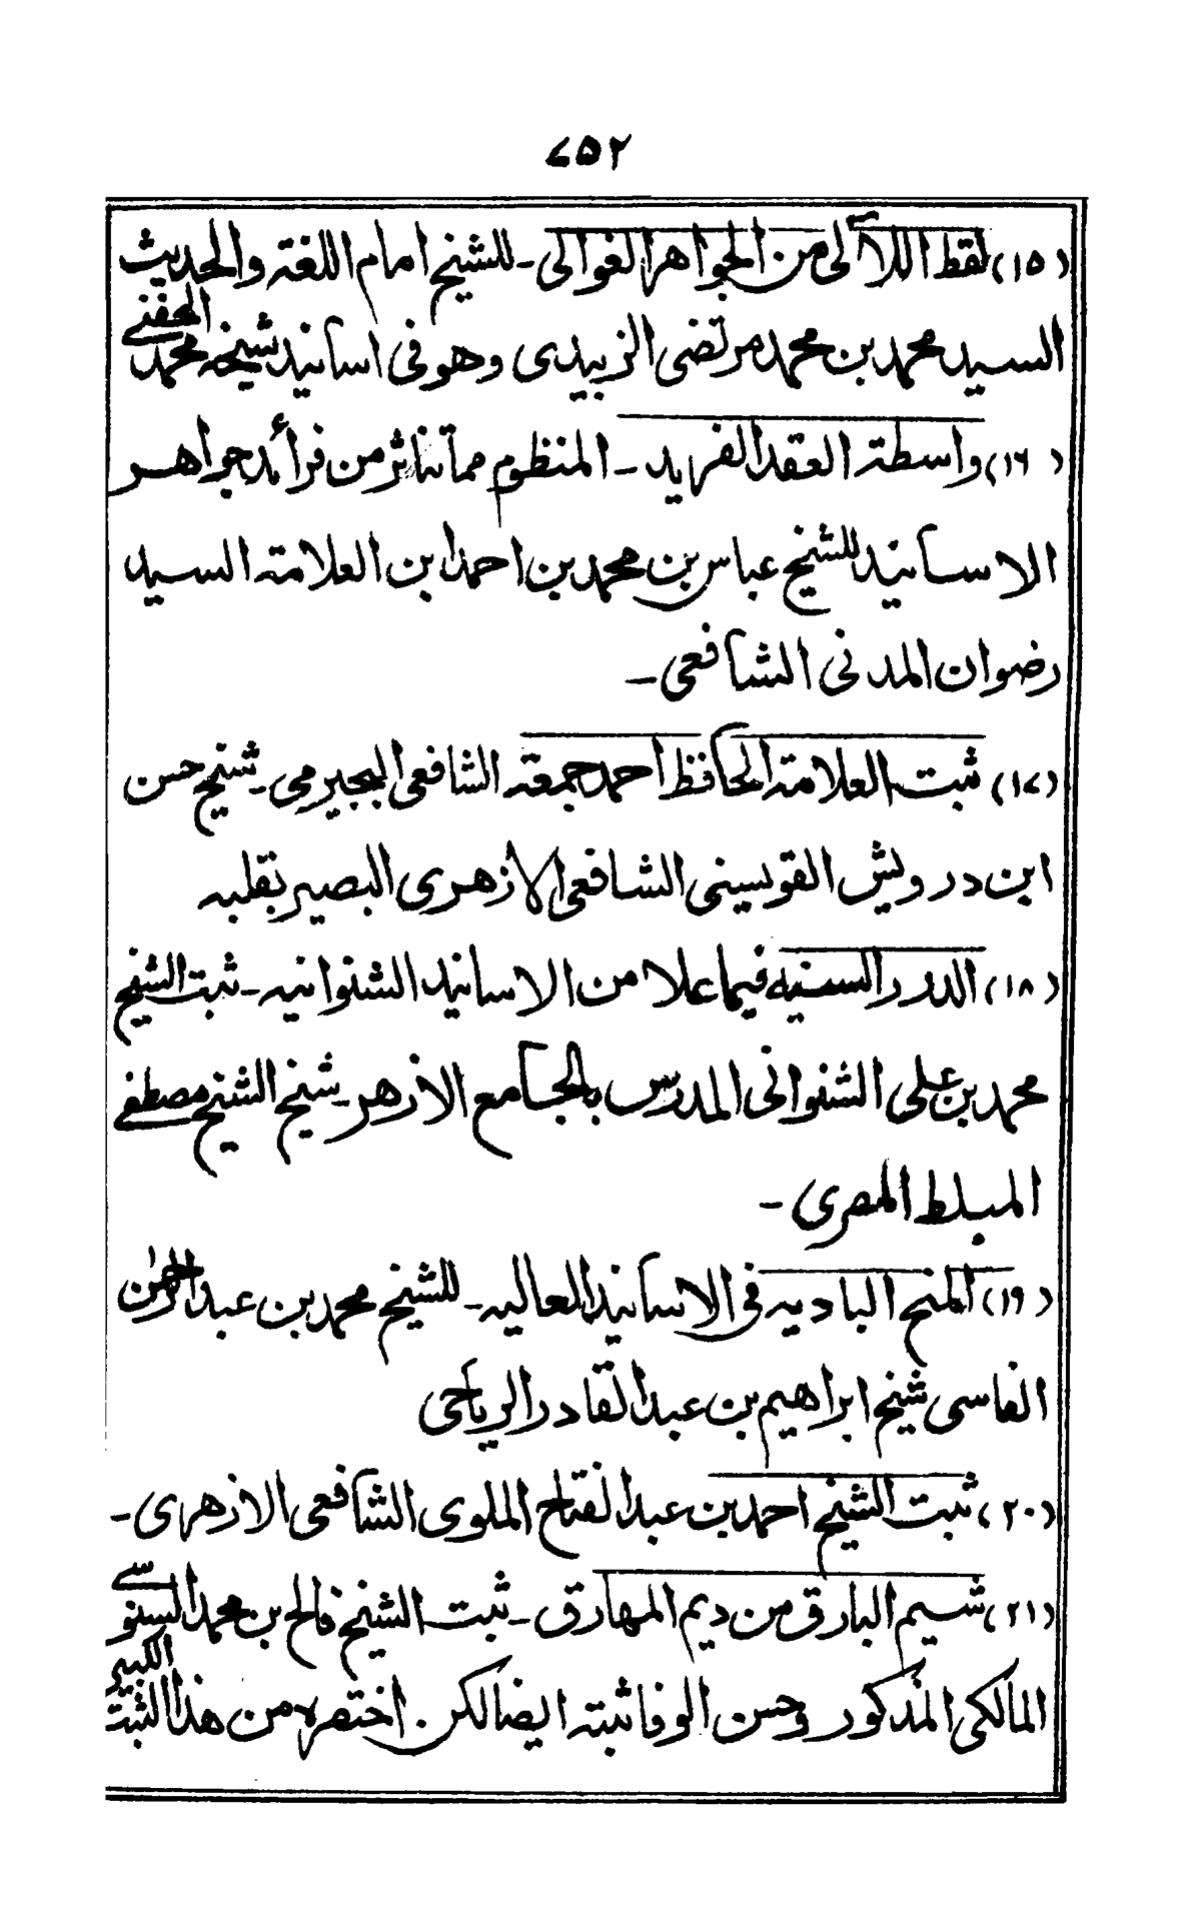 ٧٥٢
(١٥) لقط اللآلى من الجواهر الغوالى ـ للشيخ امام اللغة والحديث
السيد محمد بن محمد مرتضى الزبيدى وهو فى اسانيد شيخه محمد الحفنى
(١٦) واسطة العقد الفريد ـ المنظوم مما تناثر من فرائد جواهر
الاسانيد للشيخ عباس بن محمد بن احمد ابن العلامة السيد
رضوان المدنى الشافعى ـ
(١٧) ثبت العلامة الحافظ احمد جمعة الشافعى البجيرمى ـ شيخ حسن
ابن درويش القويسنى الشافعى الازهرى البصير بقلبه
(١٨) الدرر السنيه فيما علا من الاسانيد الشنوانيه ـ ثبت الشيخ
محمد بن على الشنوانى المدرس بالجامع الازهر ـ شيخ الشيخ مصطفى
المبلط المصرى ـ
(١٩) المنح الباديه فى الاسانيد العاليه ـ للشيخ محمد بن عبد الرحمٰن
الفاسى شيخ ابراهيم بن عبد القادر الرياحى
(٢٠) ثبت الشيخ احمد بن عبد الفتاح الملوى الشافعى الازهرى ـ
(٢١) شيم البارق من ديم المهارق ـ ثبت الشيخ فالح بن محمد السنوسى
المالكى المذكور وحسن الوفا ثبته ايضا لكن اختصره من هذا الثبت الكبير